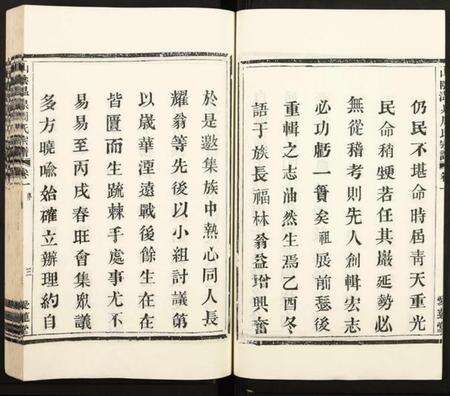 仍民不堪命時屆青天重光
民命稍甦若任其嚴延勢必
無從稽考則先人創輯宏志
必功虧一簣矣祖展前瑟後
重輯之志油然生焉乙酉冬
語于族長福林翁益增興奮
於是邀集族中熱心同人長
耀翁等先後以小組討議第
以歲華湮遠戰後餘生在在
皆匱而生疏棘手處事尤不
易易至丙戌春旺會集眾議
多方曉喻始確立辦理約自
序
三
愛蓮堂